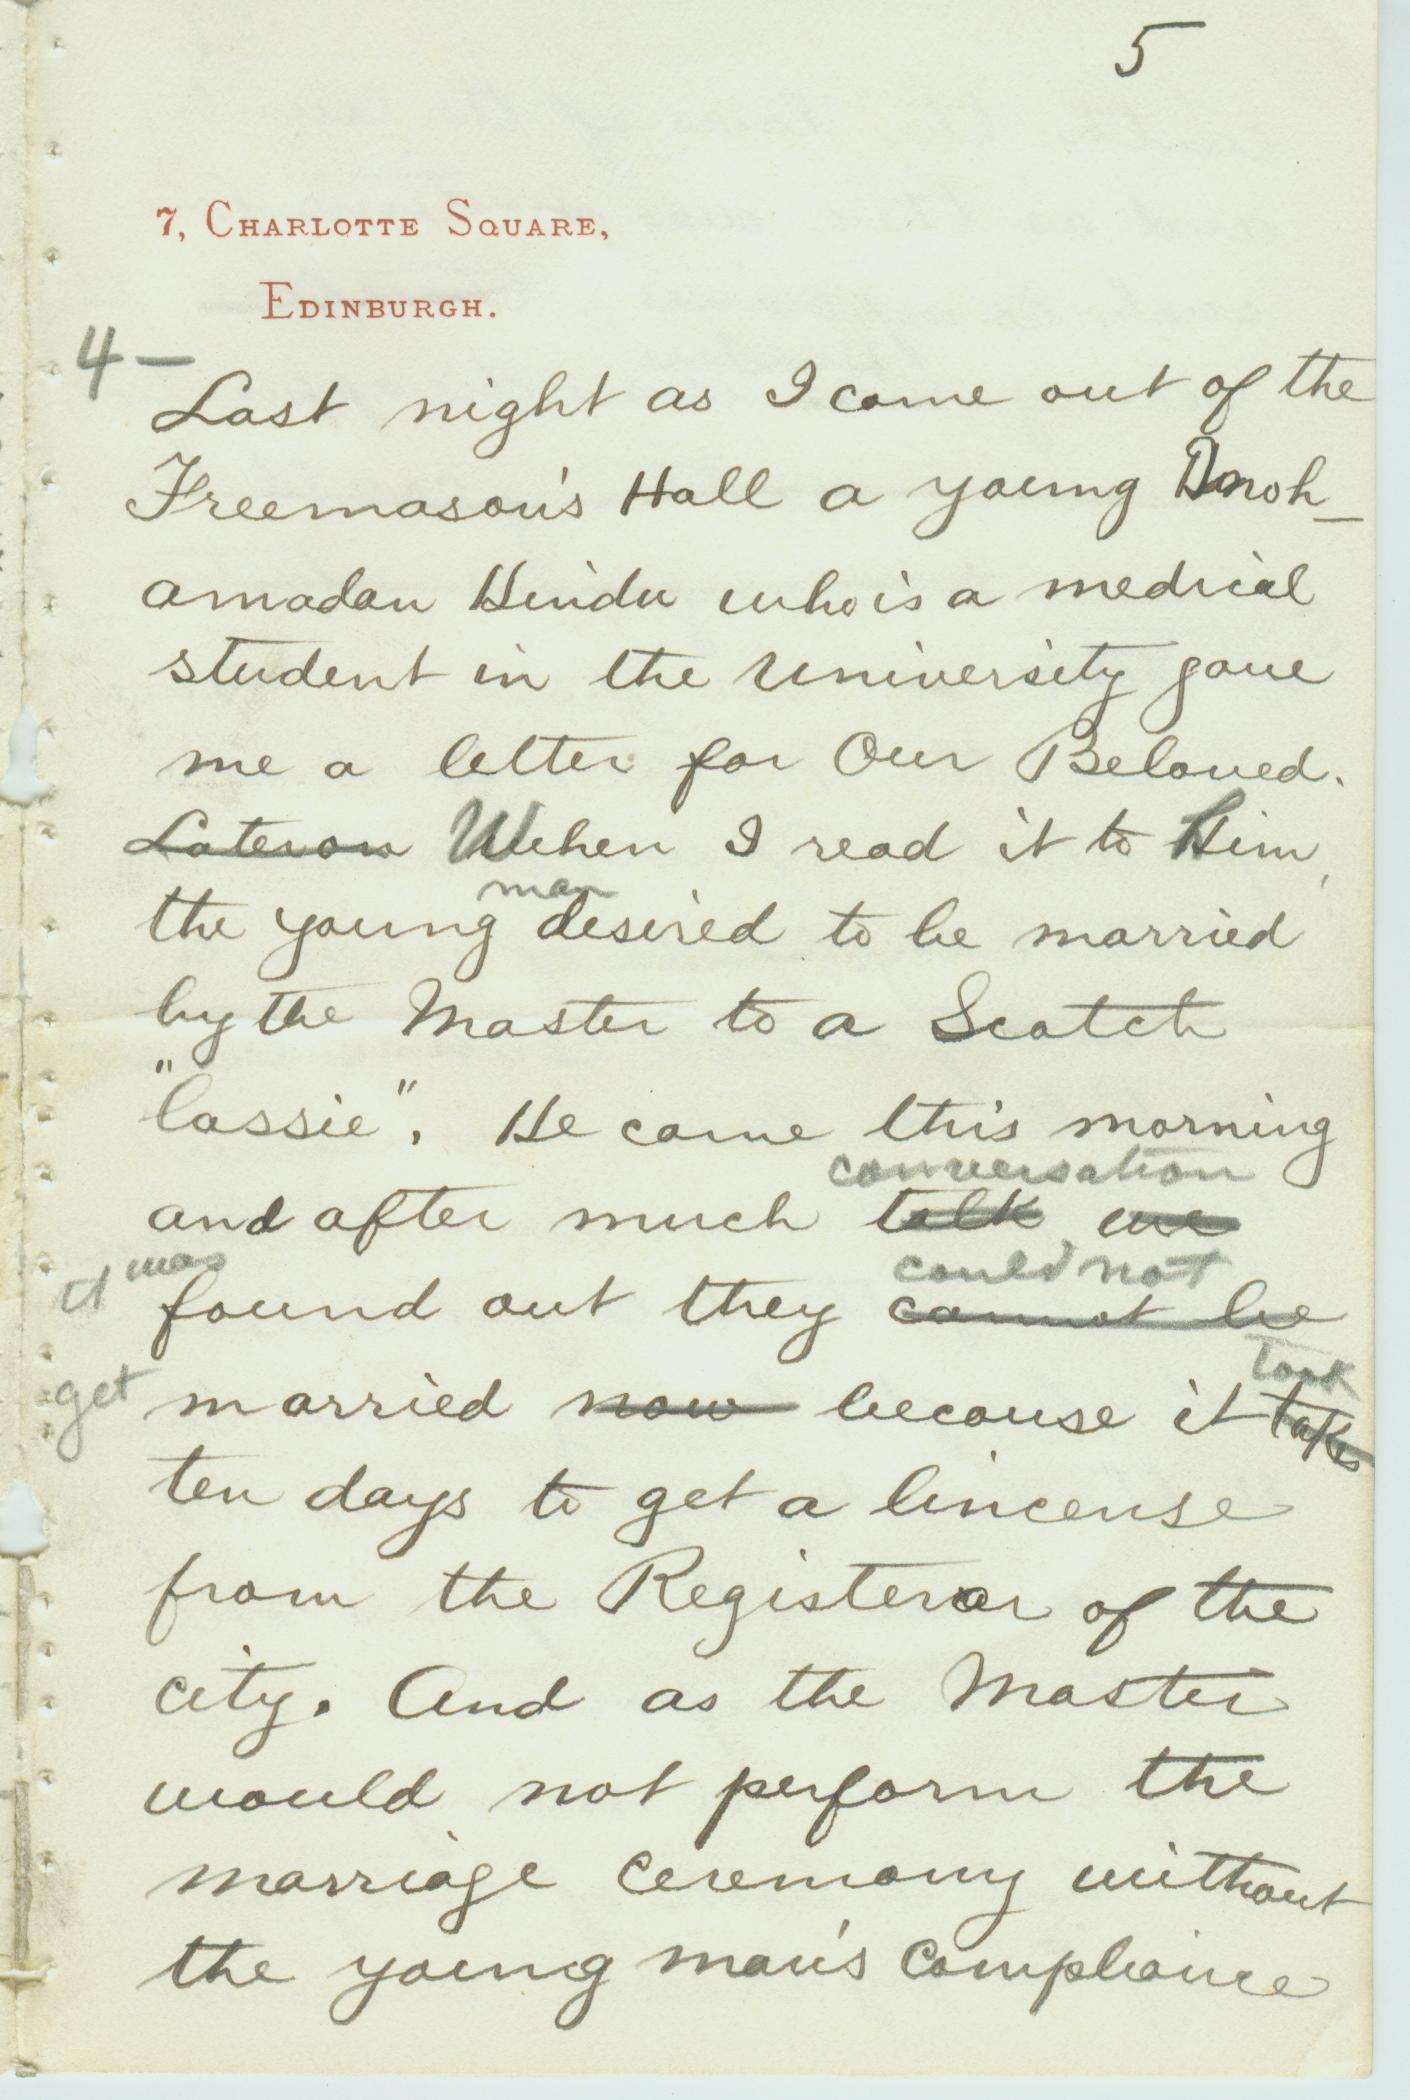 5
7, CHARLOTTE SQUARE,
EDINBURGH.
4 —
Last night as I came out of the
Freemason's Hall a young Moh-
amadan Hindu who is a medical
student in the University gave
me a letter for Our Beloved.
Later on When I read it to Him,
man
the young desired to be married
by the Master to a Scotch
"lassie". He came this morning
conversation
and after much talk we
it was could not
found out they cannot be
took
get married now because it takes
ten days to get a lincense
from the Registerar of the
city. And as the Master
would not perform the
marriage ceremony without
the young man's compliance